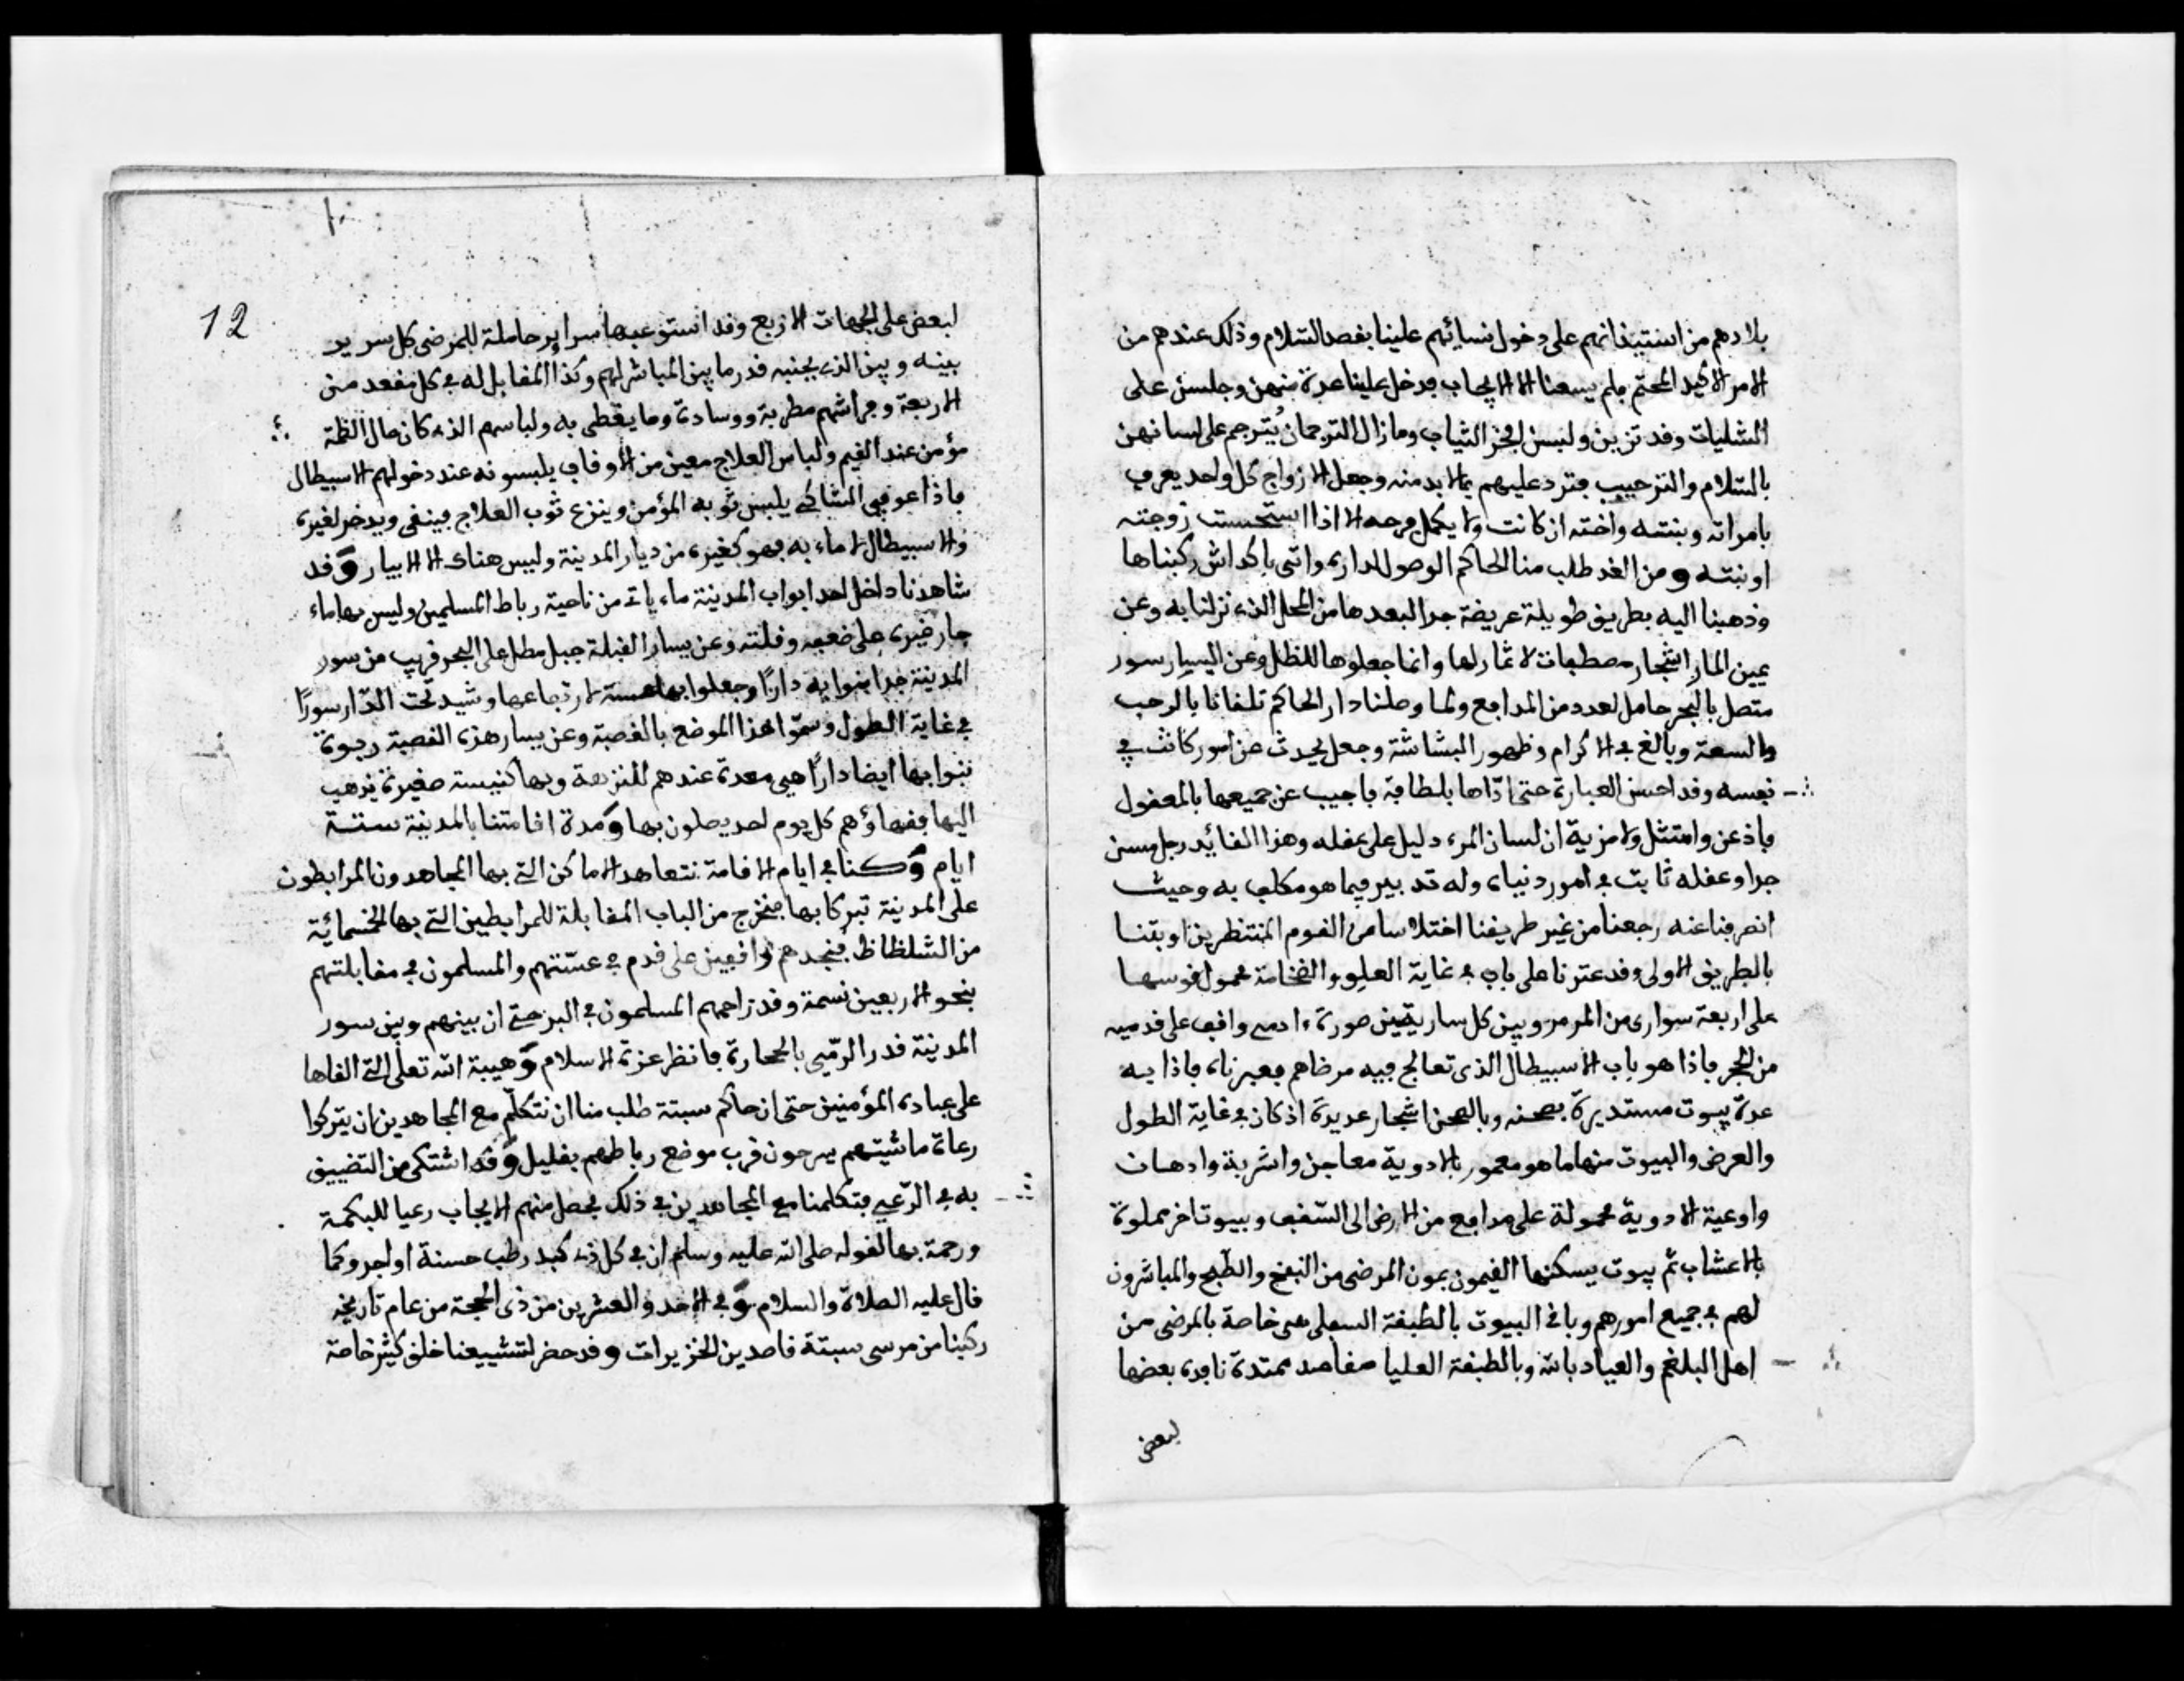 بلادهم من استيذانهم على دخول نسائهم علينا بقصد السلام وذلك عندهم من
الامر الاكيد المحتم فلم يسعنا الا الايجاب فدخل علينا عدة منهن وجلسن على
الشليات وقد تزين ولبسن افخر الثياب وما زال الترجمان يُترجم على لسانهن
بالسلام والترحيب فنرد عليهم بما لا بد منه وجعل الازواج كل واحد يعرف
بامراته وبنته واخته ان كانت ولا يكمل فرحه الا اذا استحسنت زوجته
او بنته ومن الغد طلب منا الحاكم الوصول لداره واتى باكداش ركبناها
وذهبنا اليه بطريق طويلة عريضة جدا لبعدها من المحل الذى نزلنا به وعن
يمين المار اشجار مصطفات لا ثمار لها وانما جعلوها للظل وعن اليسار سور
متصل بالبحر حامل لعدد من المدافع ولما وصلنا دار الحاكم تلقانا بالرحب
والسعة وبالغ في الاكرام وظهور البشاشة وجعل يحدث عن امور كانت في
نفسه وقد احسن العبارة حتى ادّاها بلطافة فاجيب عن جميعها بالمعقول
فاذعن وامتثل ولا مزية ان لسان المرء دليل على عقله وهذا القائد رجل مسن
جدا وعقله ثابت في امور دنياه وله تدبير فيما هو مكلف به وحيث
انصرفنا عنه رجعنا من غير طريقنا اختلاسا من القوم المنتظرين اوبتنا
بالطريق الاولى وقد عثرنا على باب في غاية العلو والضخامة محمول قوسها
على اربعة سوارى من المرمر وبين كل ساريتين صورة ءادمى واقف على قدميه
من الحجر فاذا هو باب الاسبيطال الذى تعالج فيه مرضاهم فعبرناه فاذا به
عدة بيوت مستديرة بصحنه وبالصحن اشجار عديدة اذ كان في غاية الطول
والعرض والبيوت منها ما هو معمور بالادوية معاجن واشربة وادهان
واوعية الادوية محمولة على مرافع من الارض الى السّقف وبيوت اخر مملوة
بالاعشاب ثم بيوت يسكنها القيمون بمون المرضى من النفخ والطّبخ والمباشرون
لهم في جميع امورهم وباقى البيوت بالطبقة السفلى هى خاصة بالمرضى من
اهل البلغم والعياذ بالله وبالطبقة العليا مقاعد ممتدة نافدة بعضها
لبعض
12
لبعض على الجهات الاربع وقد استوعبها سراير حاملة للمرضى كل سرير
بينه وبين الذى بجنبه قدر ما بين المباشر لهم وكذا المقابل له في كل مقعد من
الاربعة وفراشهم مطربة ووسادة وما يغطى به ولباسهم الذى كان حال الصّحة
مؤمن عند القيم ولباس العلاج معين من الاوقاف يلبسونه عند دخولهم الاسبيطال
فاذا عوفى الشاكى يلبس ثوبه المؤمن وينزع ثوب العلاج فينقى ويدخر لغيره
والاسبيطال لا ماء به فهو كغيره من ديار المدينة وليس هناك الا الابيار وقد
شاهدنا داخل احد ابواب المدينة ماء ياتى من ناحية رباط المسلمين وليس بها ماء
جار غيره على ضعفه وقلته وعن يسار القبلة جبل مطل على البحر قريب من سور
المدينة جدا بنوا به دارًا وجعلوا بها عسة لارتفاعها وشيد تحت الدّار سورًا
في غاية الطول وسمّوا هذا الموضع بالقصبة وعن يسار هذه القصبة ربوة
بنوا بها ايضا دارًا هى معدة عندهم للنزهة وبها كنيسة صغيرة يذهب
اليها فقهاؤهم كل يوم احد يصلون بها ومدة اقامتنا بالمدينة ستة
ايام وكنا في ايام الاقامة نتعاهد الاماكن التى بها المجاهدون المرابطون
على المدينة تبركا بها فنخرج من الباب المقابلة للمرابطين التى بها الخمسمائة
من الشلظاظ فنجدهم واقفين على قدم في عسّتهم والمسلمون في مقابلتهم
بنحو الاربعين نسمة وقد زاحمهم المسلمون في البر حتى ان بينهم وبين سور
المدينة قدر الرّمى بالحجارة فانظر عزة الاسلام وهيبة الله تعلى التى القاها
على عباده المؤمنين حتى ان حاكم سبتة طلب منا ان نتكلم مع المجاهدين ان يتركوا
رعاة ماشيتهم يسرحون قرب موضع رباطهم بقليل وقد اشتكى من التضييق
به في الرّعى فتكلمنا مع المجاهدين في ذلك فحصل منهم الايجاب رعيا للبكمة
ورحمة بها لقوله صلى الله عليه وسلم ان في كل ذى كبد رطب حسنة او اجر وكما
قال عليه الصلاة والسلام وفي الاحد والعشرين من ذى الحجة من عام تاريخه
ركبنا من مرسى سبتة قاصدين الخزيرات وقد حضر لتشييعنا خلق كثير خاصة